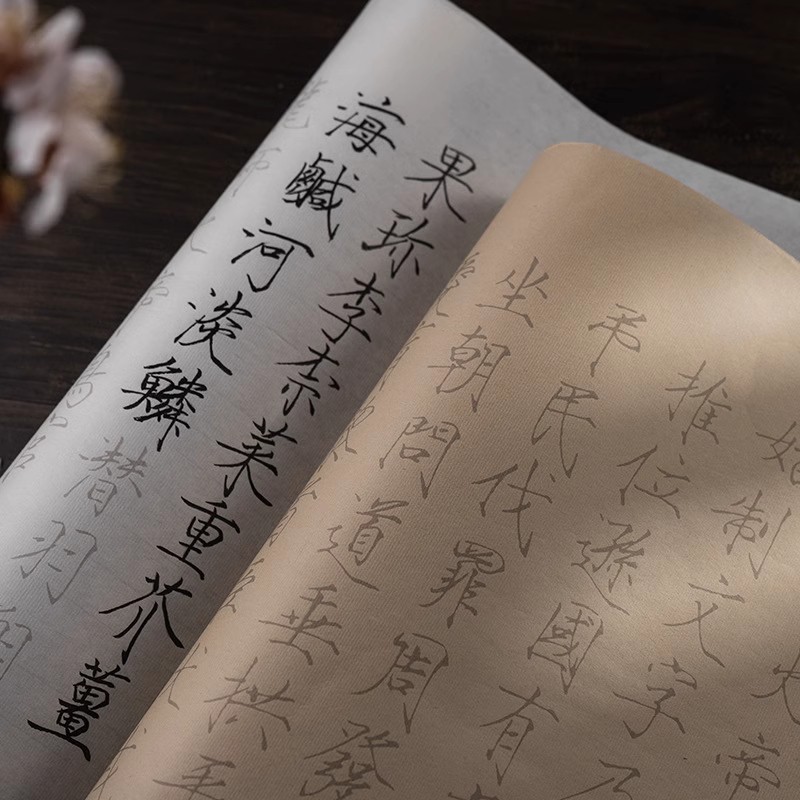 火帝
始制文字乃
推位遜國有
弔民伐罪周發
坐朝問道垂拱平
果珍李柰菜重芥薑
海鹹河淡鱗潜羽翔